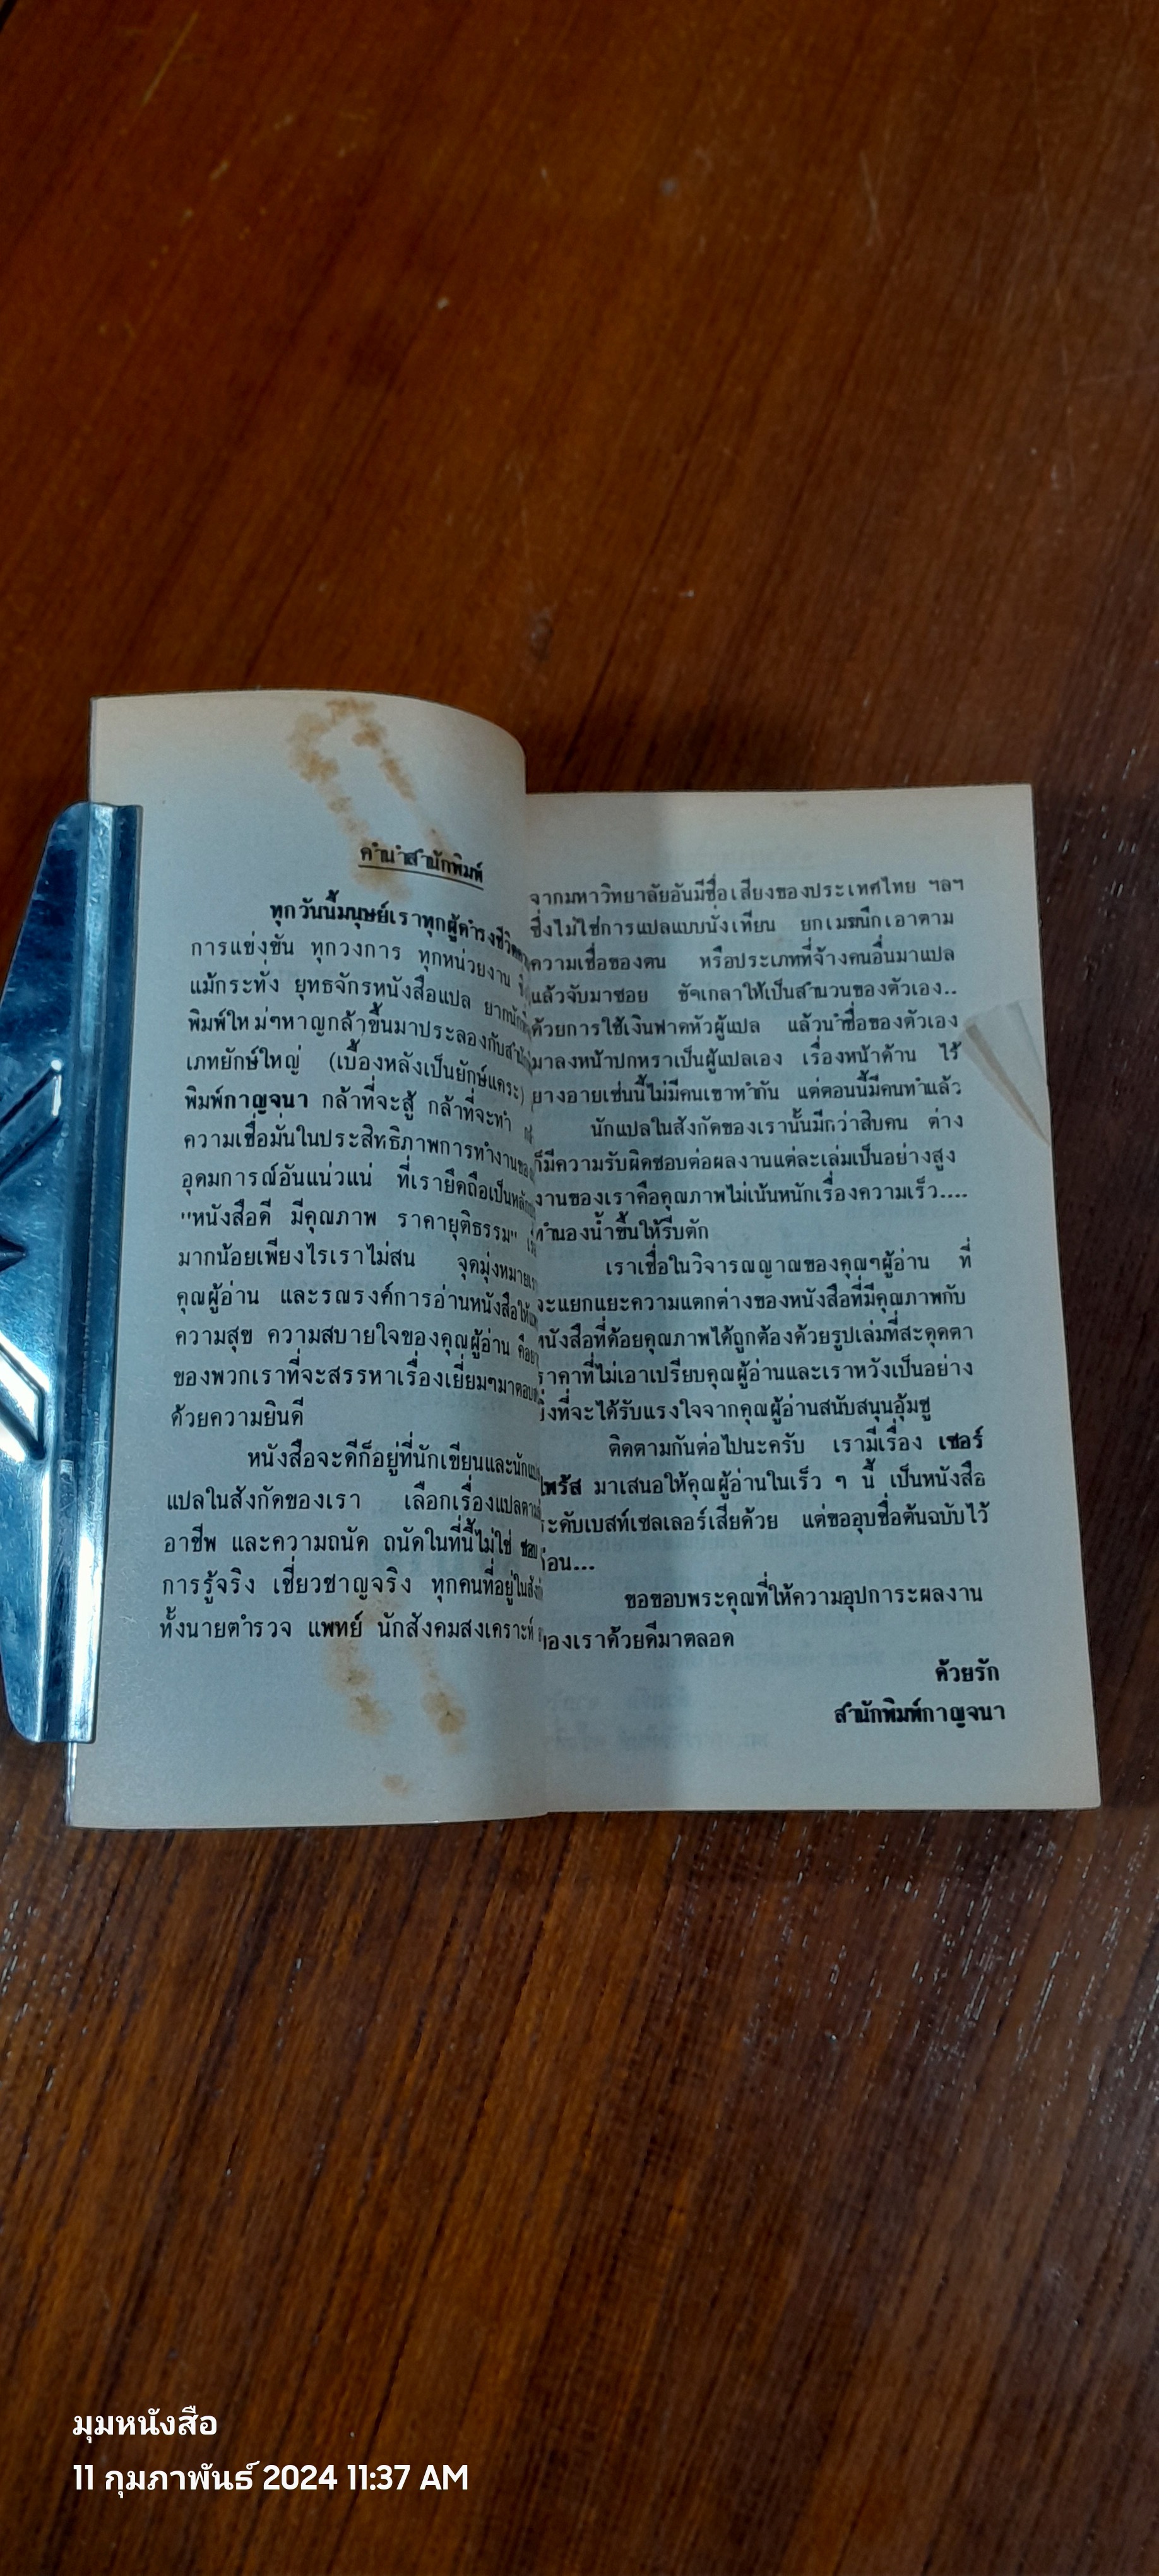 คำนำสำนักพิมพ์
ทุกวันนี้มนุษย์เราทุกผู้ดำรงชีวิต
การแข่งขัน ทุกวงการ ทุกหน่วยงาน
แม้กระทั่ง ยุทธจักรหนังสือแปล
พิมพ์ใหม่ๆหาญกล้าขึ้นมาประลองกับ
เภทยักษ์ใหญ่ (เบื้องหลังเป็นยักษ์แคระ)
พิมพ์กาญจนา กล้าที่จะสู้ กล้าที่จะทำ
ความเชื่อมั่นในประสิทธิภาพการทำงาน
อุดมการณ์อันแน่วแน่ ที่เรายึดถือเป็น
"หนังสือดี มีคุณภาพ ราคายุติธรรม"
มากน้อยเพียงไรเราไม่สน จุดมุ่งหมาย
คุณผู้อ่าน และรณรงค์การอ่านหนังสือ
ความสุข ความสบายใจของคุณผู้อ่าน
ของพวกเราที่จะสรรหาเรื่องเยี่ยมๆมา
ด้วยความยินดี
หนังสือจะดีก็อยู่ที่นักเขียนและ
แปลในสังกัดของเรา เลือกเรื่องแปล
อาชีพ และความถนัด ถนัดในที่นี้ไม่ใช่
การรู้จริง เชี่ยวชาญจริง ทุกคนที่อยู่ใน
ทั้งนายตำรวจ แพทย์ นักสังคมสงเคราะห์
จากมหาวิทยาลัยอันมีชื่อเสียงของประเทศไทย ฯลฯ
ซึ่งไม่ใช่การแปลแบบนั่งเทียน ยกเมฆนึกเอาตาม
ความเชื่อของตน หรือประเภทที่จ้างคนอื่นมาแปล
แล้วจับมาซอย ขัดเกลาให้เป็นสำนวนของตัวเอง..
ด้วยการใช้เงินฟาดหัวผู้แปล แล้วนำชื่อของตัวเอง
มาลงหน้าปกหราเป็นผู้แปลเอง เรื่องหน้าด้าน ไร้
ยางอายเช่นนี้ไม่มีคนเขาทำกัน แต่ตอนนี้มีคนทำแล้ว
นักแปลในสังกัดของเรานั้นมีกว่าสิบคน ต่าง
ก็มีความรับผิดชอบต่อผลงานแต่ละเล่มเป็นอย่างสูง
งานของเราคือคุณภาพไม่เน้นหนักเรื่องความเร็ว....
ทำนองน้ำขึ้นให้รีบตัก
เราเชื่อในวิจารณญาณของคุณๆผู้อ่าน ที่
จะแยกแยะความแตกต่างของหนังสือที่มีคุณภาพกับ
หนังสือที่ด้อยคุณภาพได้ถูกต้องด้วยรูปเล่มที่สะดุดตา
ราคาที่ไม่เอาเปรียบคุณผู้อ่านและเราหวังเป็นอย่าง
ยิ่งที่จะได้รับแรงใจจากคุณผู้อ่านสนับสนุนอุ้มชู
ติดตามกันต่อไปนะครับ เรามีเรื่อง เซอร์
ไพร้ส มาเสนอให้คุณผู้อ่านในเร็ว ๆ นี้ เป็นหนังสือ
ระดับเบสท์เซลเลอร์เสียด้วย แต่ขออุบชื่อต้นฉบับไว้
ก่อน...
ขอขอบพระคุณที่ให้ความอุปการะผลงาน
ของเราด้วยดีมาตลอด
ด้วยรัก
สำนักพิมพ์กาญจนา
มุมหนังสือ
11 กุมภาพันธ์ 2024 11:37 AM